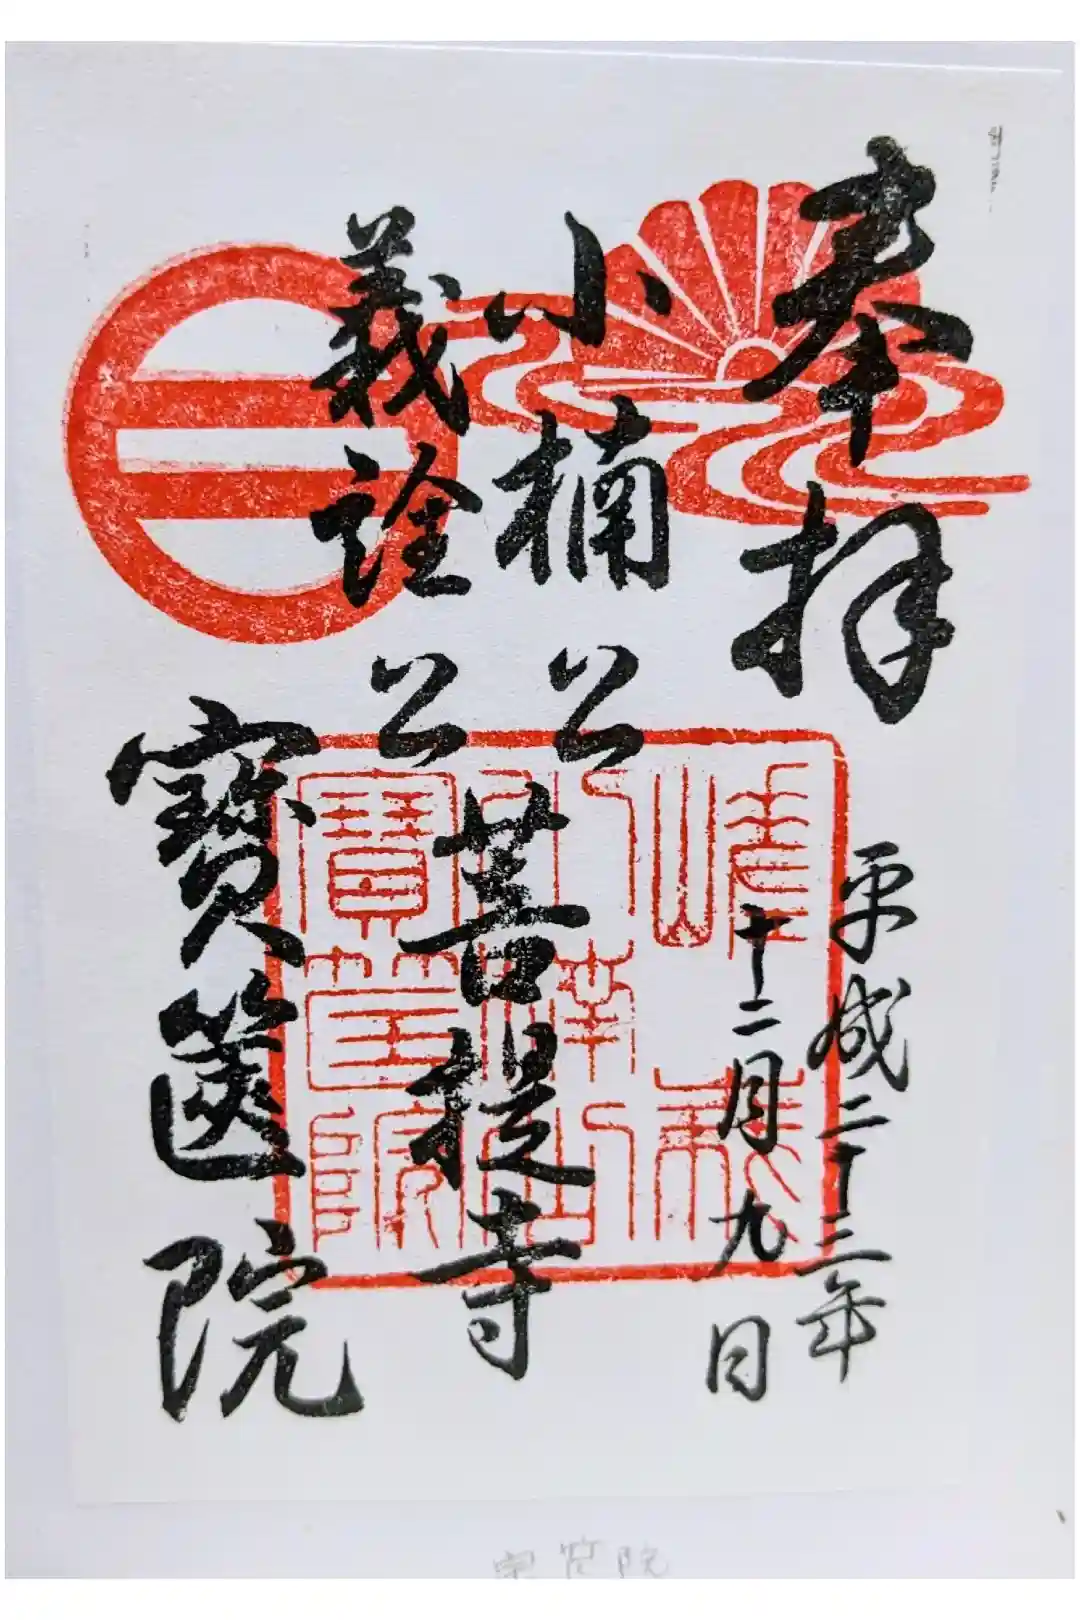 奉拝
平成二十三年
十二月九日
小楠公
義詮公
菩提寺
寶篋院
嵯峨
小楠山
寶筐院
宝筐院